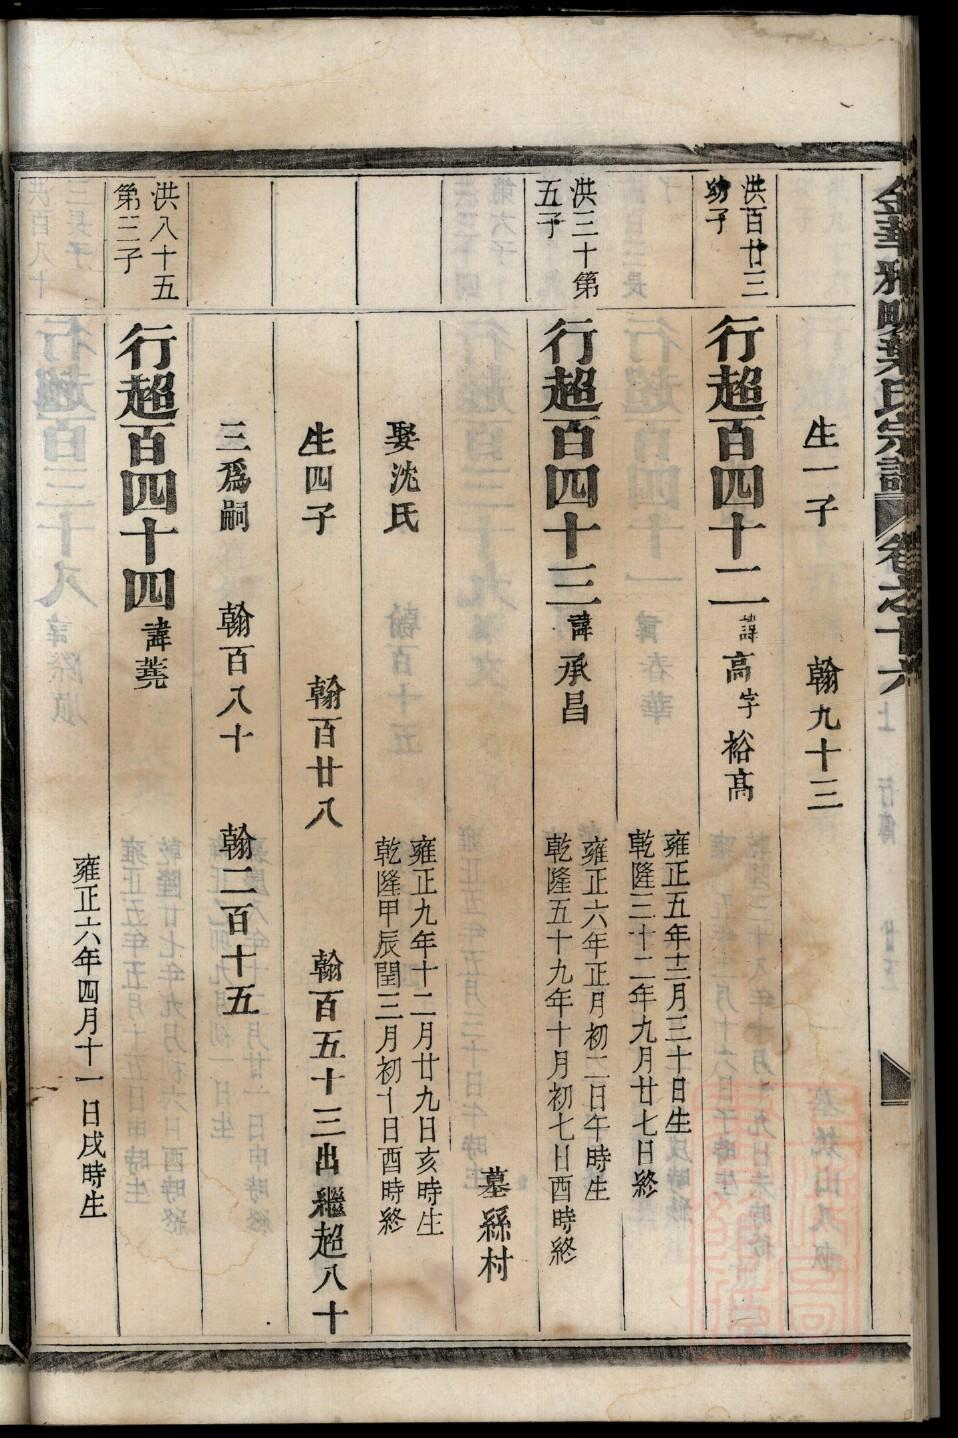 金華雅畈葉氏宗譜 卷之十六
生一子 翰九十三
洪百廿三
幼子
行超百四十二 諱高字裕高
雍正五年十二月三十日生
乾隆三十二年九月廿七終
洪三十第
五子
行超百四十三 諱承昌
雍正六年正月初二日午時生
乾隆五十九年十月初七日酉時終
墓縣村
娶沈氏
雍正九年十二月廿九日亥時生
乾隆甲辰閏三月初十日酉時終
生四子 翰百廿八 翰百五十三出繼超八十
三爲嗣 翰百八十 翰二百十五
洪八十五
第三子
行超百四十四 諱蕘
雍正六年四月十一日戌時生